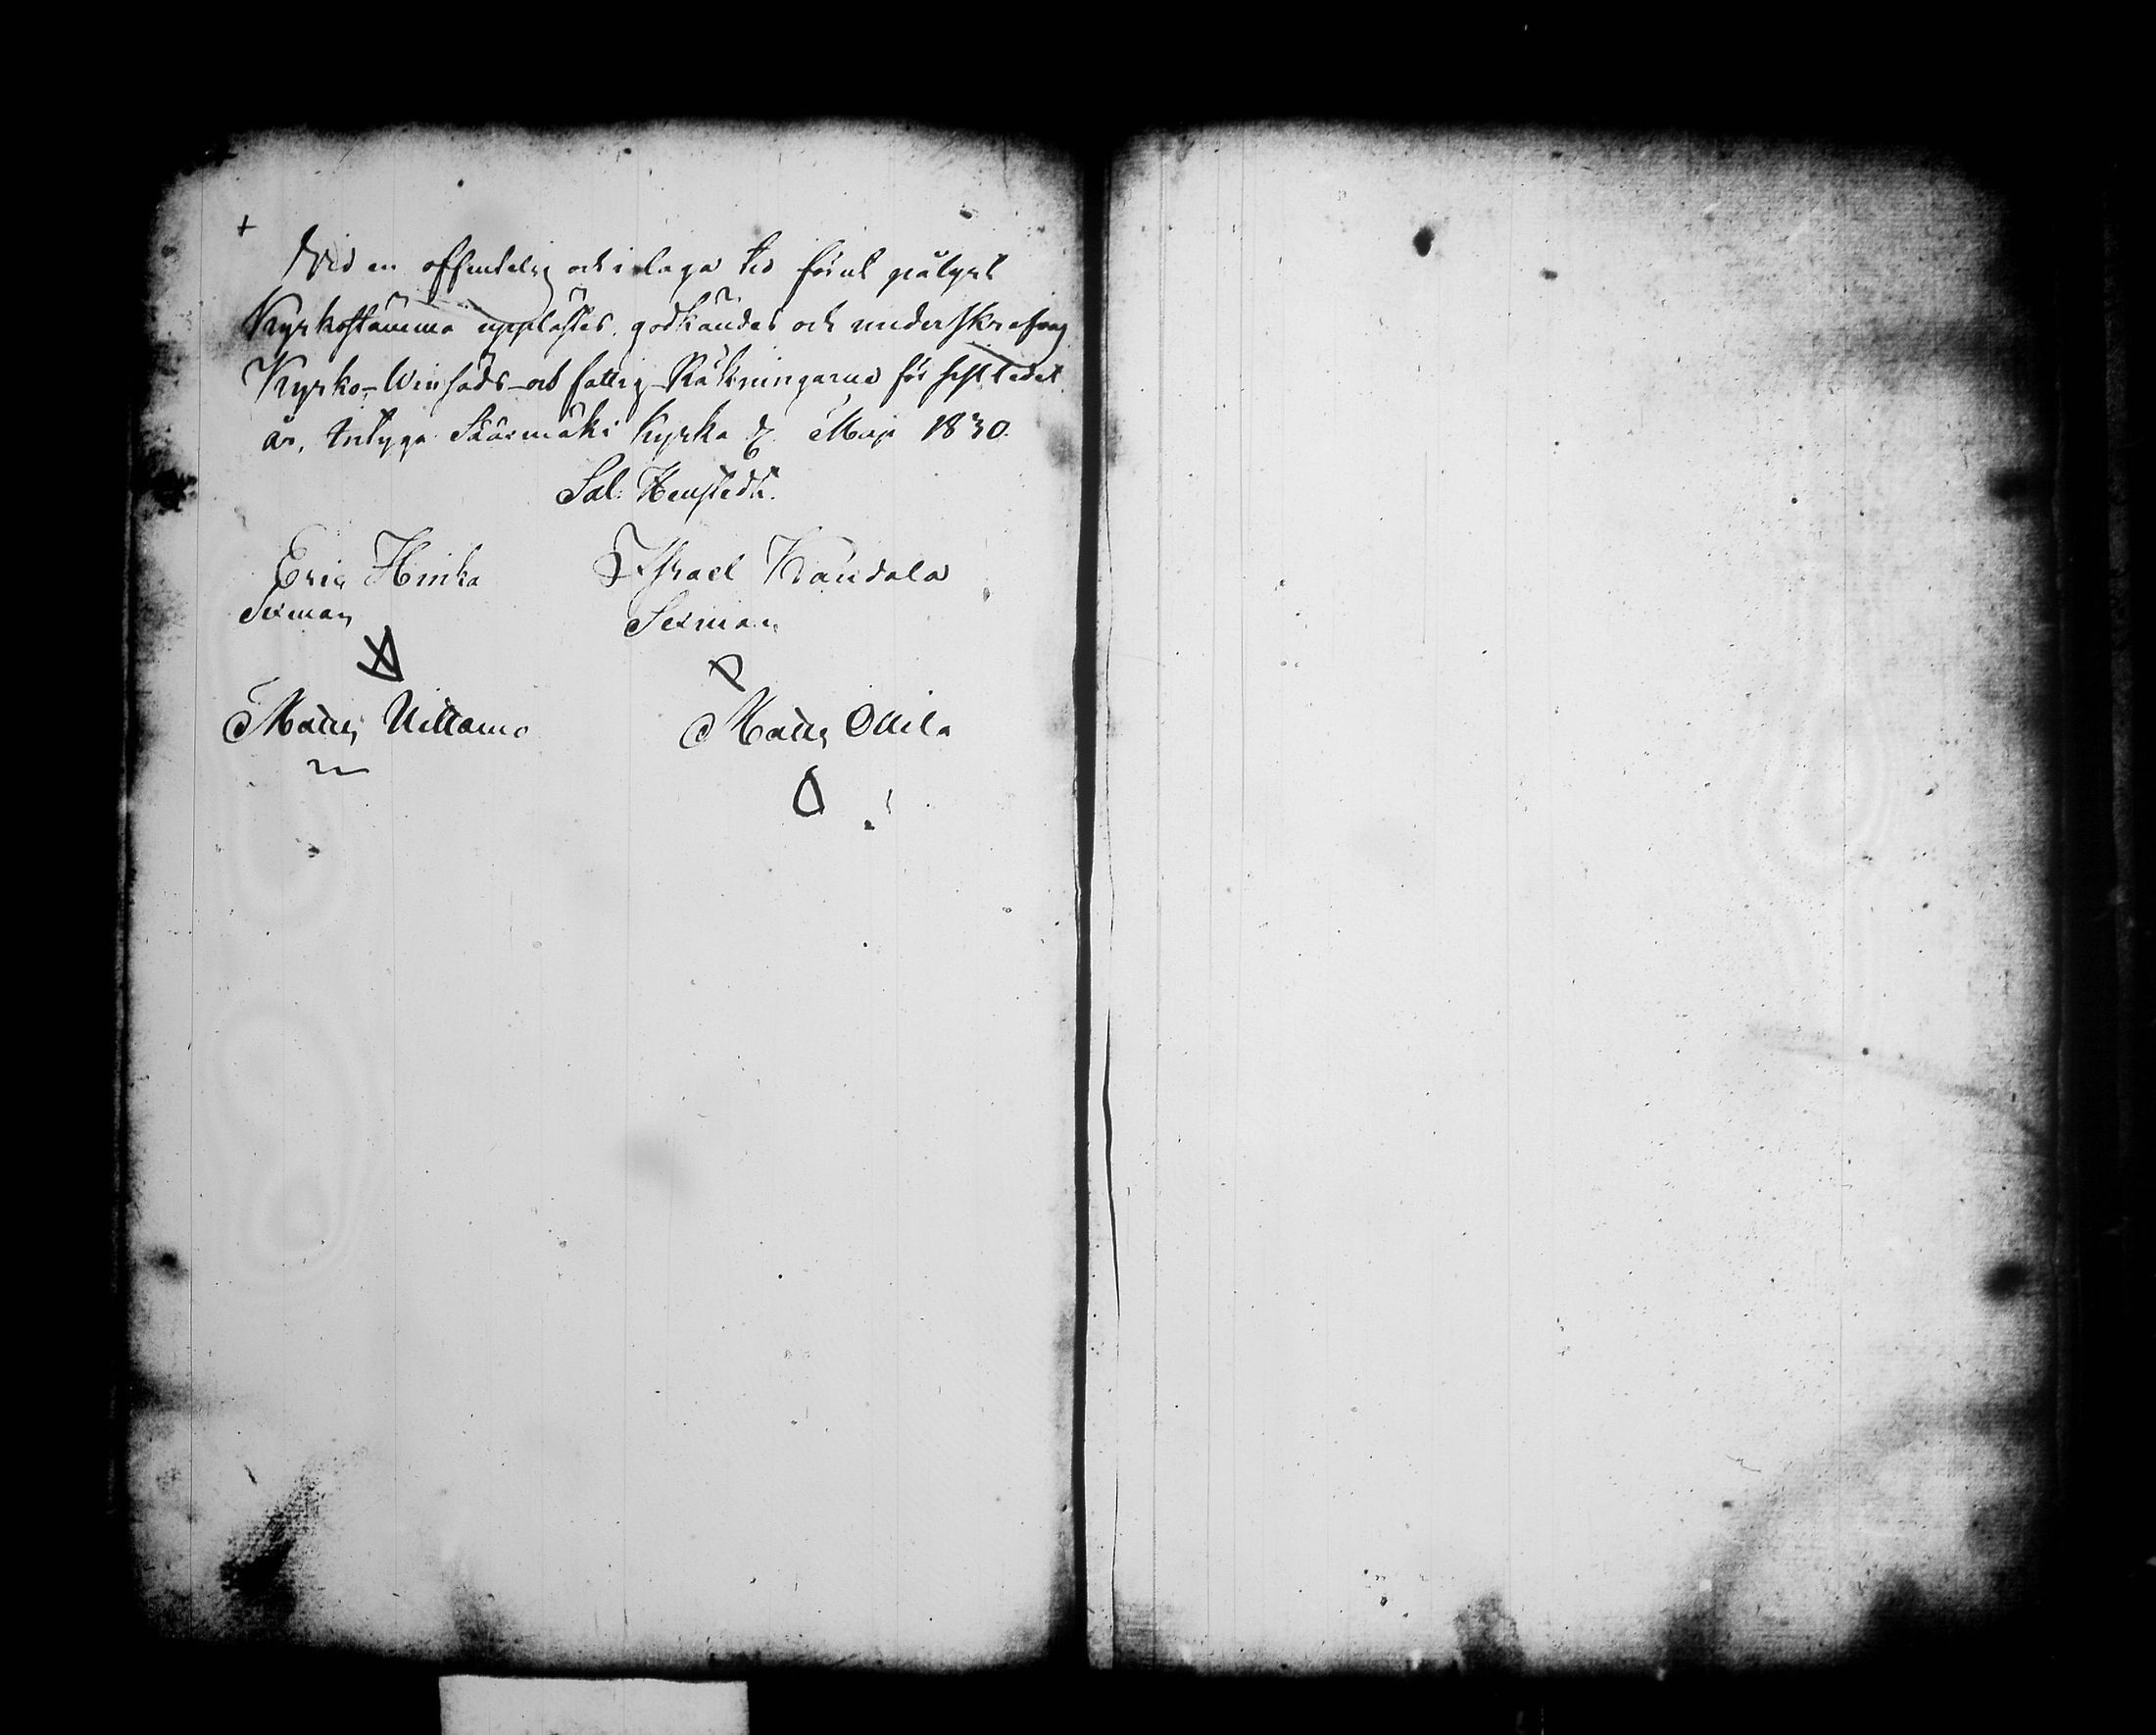 +
Wid en offentelig och i laga tid förut pålyst
Kyrkostämma upplästes, godkändes och underskrefvos
Kyrko- Winsäds- och fattig-Räkningarne för sistledet
år, Intyga Sääxmäki Kyrka d. Maji 1830.
Sal: Henstedt.
Eric Hinka Israel Kandala
Sexman Sexman
Matts Uittamo Matts Ollila